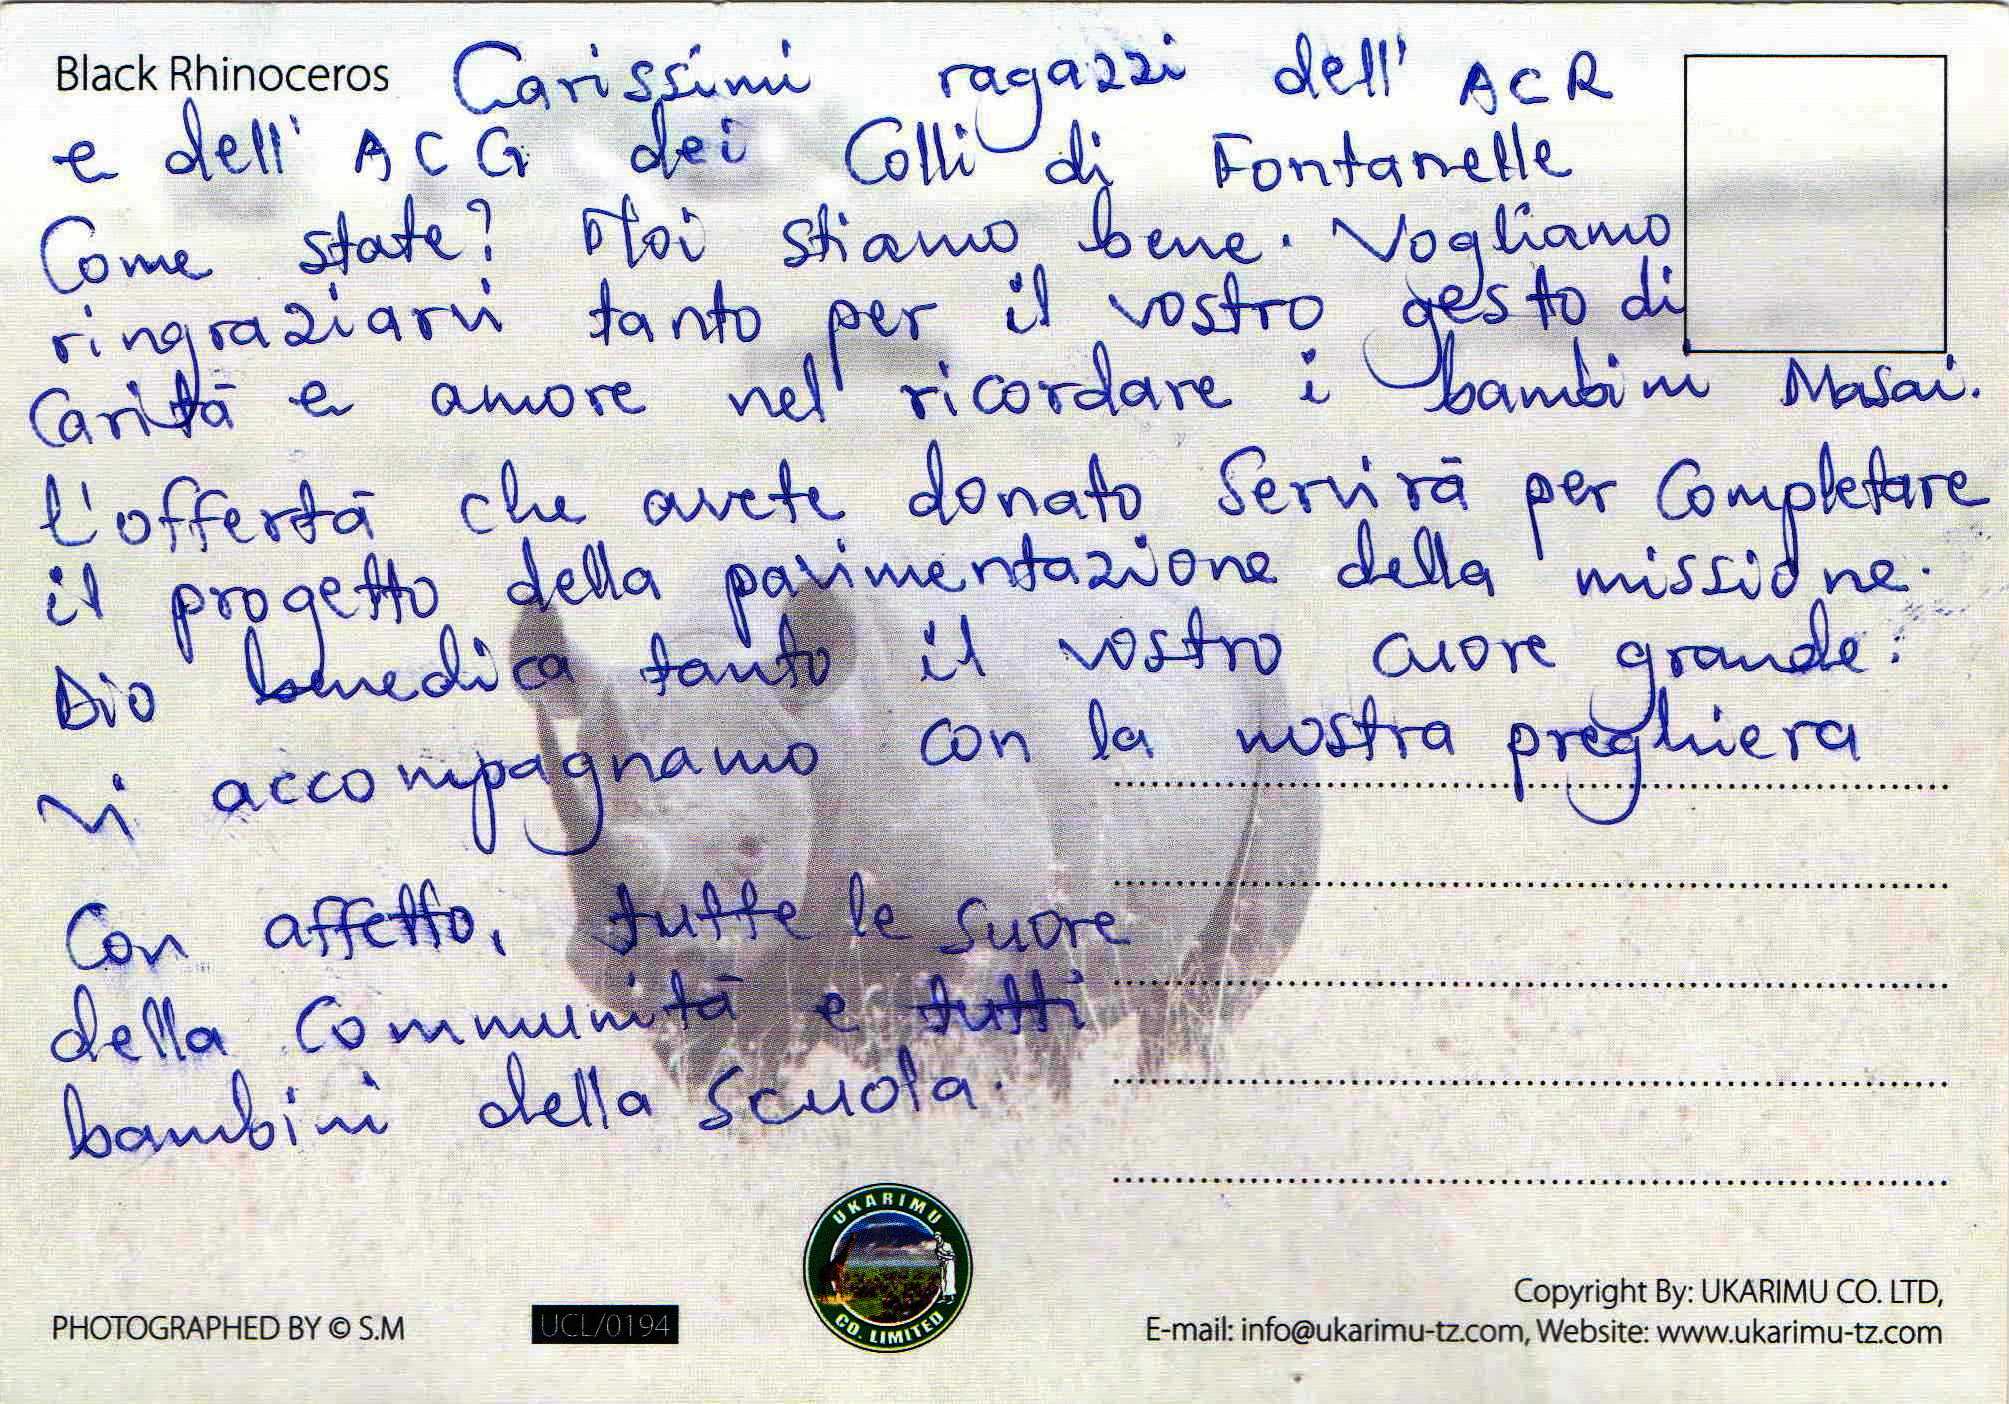 Black Rhinoceros
Carissimi ragazzi dell' ACR
e dell' ACG dei Colli di Fontanelle
Come state? Noi stiamo bene. Vogliamo
ringraziarvi tanto per il vostro gesto di
Carità e amore nel ricordare i bambini Masai.
l'offertà che avete donato Servirà per Completare
il progetto della pavimentazione della missione.
Dio benedica tanto il vostro cuore grande:
Vi accompagnamo con la nostra preghiera
Con affetto, tutte le suore
della Communità e tutti
bambini della scuola.
UKARIMU
CO. LIMITED
PHOTOGRAPHED BY © S.M
UCL/0194
Copyright By: UKARIMU CO. LTD,
E-mail: info@ukarimu-tz.com, Website: www.ukarimu-tz.com